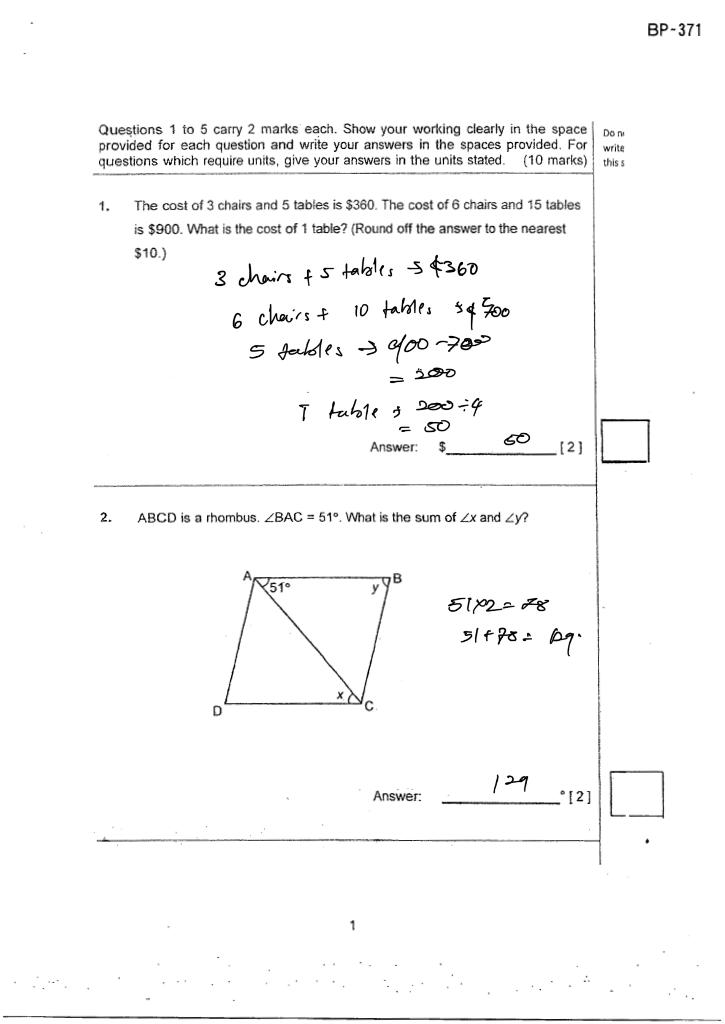 BP-371
Questions 1 to 5 carry 2 marks each. Show your working clearly in the space
provided for each question and write your answers in the spaces provided. For
questions which require units, give your answers in the units stated. (10 marks)
Do
write
this s
1. The cost of 3 chairs and 5 tables is $360. The cost of 6 chairs and 15 tables
is $900. What is the cost of 1 table? (Round off the answer to the nearest
$10.)
3 chairs + 5 tables → $360
6 chairs + 10 tables → $700
5 tables → 900 - 700
= 200
1 table → 200 ÷ 4
= 50
Answer: $ 50 [2]
2. ABCD is a rhombus. ∠BAC = 51°. What is the sum of ∠x and ∠y?
A 51° y B
51×2 = 78
51 + 78 = 129.
x
D C
Answer: 129 ° [2]
1